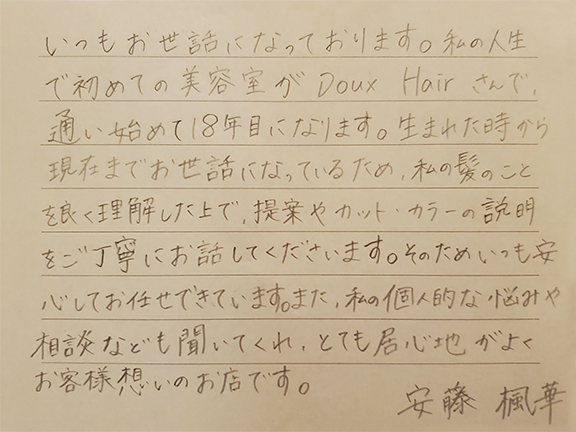 いつもお世話になっております。私の人生
で初めての美容室が Doux Hair さんで、
通い始めて18年目になります。生まれた時から
現在までお世話になっているため、私の髪のこと
を良く理解した上で、提案やカット・カラーの説明
をご丁寧にお話してくださいます。そのためいつも安
心してお任せできています。また、私の個人的な悩みや
相談なども聞いてくれ、とても居心地がよく
お客様想いのお店です。
安藤 楓華